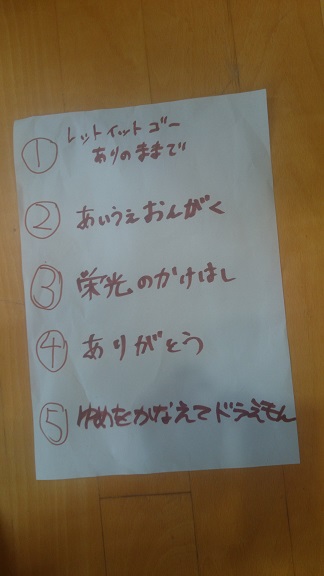 ① レットイットゴー
ありのままで
② あいうえおんがく
③ 栄光のかけはし
④ ありがとう
⑤ ゆめをかなえてドラえもん